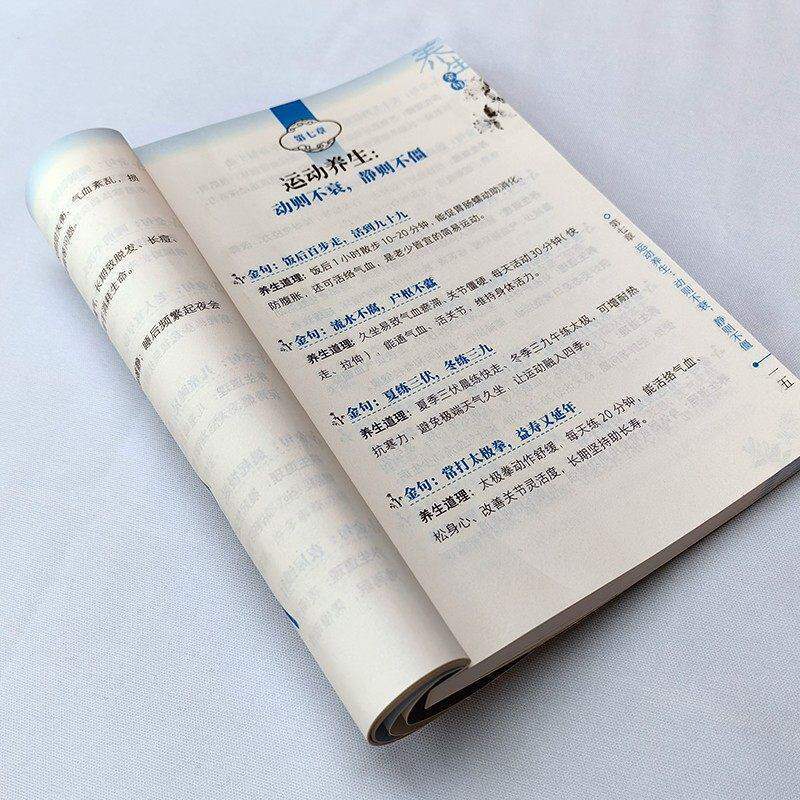 气血紊乱，损
长期致脱发、长痘、
消耗生命。
睡后频繁起夜会
养生
金句
第七章
运动养生：
动则不衰，静则不僵
金句：饭后百步走，活到九十九
养生道理：饭后1小时散步10-20分钟，能促胃肠蠕动助消化、
防腹胀，还可活络气血，是老少皆宜的简易运动。
金句：流水不腐，户枢不蠹
养生道理：久坐易致气血瘀滞、关节僵硬，每天活动30分钟（快
走、拉伸），能通气血、活关节，维持身体活力。
金句：夏练三伏，冬练三九
养生道理：夏季三伏晨练快走，冬季三九午练太极，可增耐热
抗寒力，避免极端天气久坐，让运动融入四季。
金句：常打太极拳，益寿又延年
养生道理：太极拳动作舒缓，每天练20分钟，能活络气血、
松身心、改善关节灵活度，长期坚持助长寿。
第七章 运动养生：动则不衰，静则不僵
一五